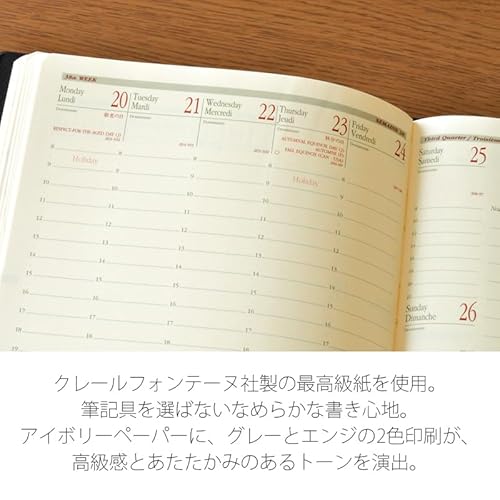 38th WEEK
Monday
Lundi
20
Tuesday
Mardi
21
Wednesday
Mercredi
22
Thursday
Jeudi
23
Friday
Vendredi
24
敬老の日
秋分の日
RESPECT-FOR-THE-AGED DAY (J)
AUTUMNAL EQUINOX DAY (J)
Holiday
Holiday
8
9
10
11
12
13
14
15
16
17
18
19
Third Quarter / Troisième
Saturday
Samedi
25
Sunday
Dimanche
26
クレールフォンテーヌ社製の最高級紙を使用。
筆記具を選ばないなめらかな書き心地。
アイボリーペーパーに、グレーとエンジの2色印刷が、
高級感とあたたかみのあるトーンを演出。